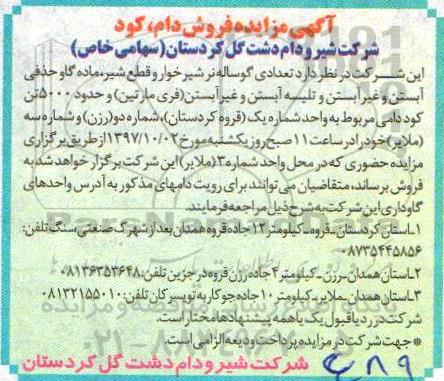 آگهی مزایده فروش دام، کود
شرکت شیر و دام دشت گل کردستان (سهامی خاص)
این شرکت در نظر دارد تعدادی گوساله نر شیرخوار و قطع شیر، ماده گاو حذفی
آبستن و غیر آبستن و تلیسه آبستن و غیر آبستن (فری مارتین) و حدود ۵۰۰۰ تن
کود دامی مربوط به واحد شماره یک (قروه کردستان)، شماره دو (رزن) و شماره سه
(ملایر) خود را در ساعت ۱۱ صبح روز یکشنبه مورخ ۱۳۹۷/۱۰/۰۲ از طریق برگزاری
مزایده حضوری که در محل واحد شماره ۳ (ملایر) این شرکت برگزار خواهد شد به
فروش برساند، متقاضیان می توانند برای رویت دامهای مذکور به آدرس واحدهای
گاوداری این شرکت به شرح ذیل مراجعه فرمایند.
۱_استان کردستان_قروه_کیلومتر ۱۲ جاده قروه همدان بعد از شهرک صنعتی سنگ تلفن:
۰۸۷۳۵۴۴۵۸۵۶
۲_استان همدان_رزن_کیلومتر ۴ جاده رزن قروه درجزین تلفن: ۰۸۱۳۶۳۵۳۶۴۸
۳_استان همدان_ملایر_کیلومتر ۱۰ جاده جوکار به تویسرکان تلفن: ۰۸۱۳۲۱۵۵۰۱۰
شرکت در رد یا قبول یک یا همه پیشنهادها مختار است.
*جهت شرکت در مزایده پرداخت ودیعه الزامی است.
شرکت شیر و دام دشت گل کردستان